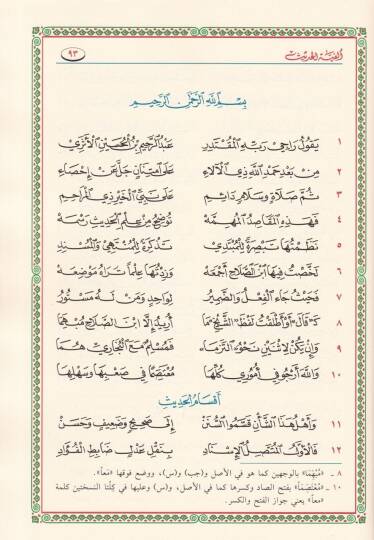 ألفية الحديث ٩٣
بِسْمِ اللهِ الرَّحْمٰنِ الرَّحِيمِ
١ يَقُولُ رَاجِي رَبِّهِ المُقْتَدِرِ عَبْدُ الرَّحِيمِ بْنُ الحُسَيْنِ الأَثَرِي
٢ مِنْ بَعْدِ حَمْدِ اللهِ ذِي الآلَاءِ عَلَى امْتِنَانٍ جَلَّ عَنْ إِحْصَاءِ
٣ ثُمَّ صَلَاةٍ وَسَلَامٍ دَائِمِ عَلَى نَبِيِّ الخَيْرِ ذِي المَرَاحِمِ
٤ فَهَذِهِ المَقَاصِدُ المُهِمَّهْ تُوَضِّحُ مِنْ عِلْمِ الحَدِيثِ رَسْمَهْ
٥ نَظَمْتُهَا تَبْصِرَةً لِلْمُبْتَدِي تَذْكِرَةً لِلْمُنْتَهِي وَالمُسْنِدِ
٦ لَخَّصْتُ فِيهَا ابْنَ الصَّلَاحِ أَجْمَعَهْ وَزِدْتُهَا عِلْمًا تَرَاهُ مَوْضِعَهْ
٧ فَحَيْثُ جَاءَ الفِعْلُ وَالضَّمِيرُ لِوَاحِدٍ وَمَنْ لَهُ مَسْتُورُ
٨ كَـ«قَالَ» أَوْ أَطْلَقْتُ لَفْظَ «الشَّيْخِ» مَا أُرِيدُ إِلَّا ابْنَ الصَّلَاحِ مُبْهَمَا
٩ وَإِنْ يَكُنْ لِاثْنَيْنِ نَحْوُ «التَزَمَا» فَمُسْلِمٌ مَعَ البُخَارِيِّ هُمَا
١٠ وَاللهَ أَرْجُو فِي أُمُورِي كُلِّهَا مُعْتَصَمًا فِي صَعْبِهَا وَسَهْلِهَا
أَقْسَامُ الحَدِيثِ
١١ وَأَهْلُ هَذَا الشَّأْنِ قَسَّمُوا السُّنَنْ إِلَى صَحِيحٍ وَضَعِيفٍ وَحَسَنْ
١٢ فَالأَوَّلُ المُتَّصِلُ الإِسْنَادِ بِنَقْلِ عَدْلٍ ضَابِطِ الفُؤَادِ
٨ ـ «مُبْهَمَا» بالوجهين كما هو في الأصل و(جب) و(س)، ووضع فوقها «معاً».
١٠ ـ «مُعْتَصَماً» بفتح الصاد وكسرها كما في الأصل، و(س) وعليها في كِلْتا النسختين كلمة
«معاً» يعني جواز الفتح والكسر.